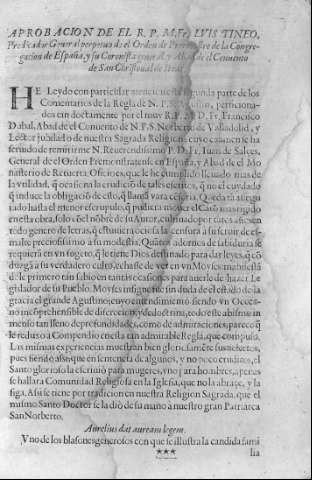 APROBACION DE EL R. P. M. Fr. LVIS TINEO,
Predicador General perpetuo de el Orden de Premonstre de la Congre-
gacion de España, y su Coronista general, y Abad de el Conuento
de San Christoual de
HE Leydo con particular atencion segunda parte de los
Comentarios de la Regla de N. P. S. Agustin, perficiona-
dos tan doctamente por el muy R. P. M. D. Fr. Francisco
Dabal, Abad de el Conuento de N. P. S. Norberto de Valladolid, y
Lector jubilado de nuestra Sagrada Religion: cuyo examen se ha
seruido de remitirme N. Reuerendissimo P. D. Fr. Iuan de
General de el Orden Premonstratense en España, y Abad de el Mo
nasterio de Retuerta. Oficio es, que le he cumplido lleuado mas de
la vtilidad, q̃ ocasiona la erudicion de tales escritos, q̃ no el cuydado
que induce la obligació de esto, q̃ llaman
do hasta el menor escrupulo, q̃ pudiera mouer el
en esta obra, solo có el nóbre de su Autor, cultiuado por tantos años en
todo genero de letras, q̃ estuuiera ociosa la censura a su
preciosissimo a su modestia. adornos de sabiduria se
requiera en vn sugeto, q̃ le tiene Dios destinado para dar leyes, q̃ có
duzgá a su verdadero culto, echase de ver en vn Moyses
de le primero tan sabio en tantas ocasiones para auerle de hazer Le
gislador de su Pueblo. Moyses insigne fue sin duda de el estado de la
gracia el grande Agustino; cuyo entendimiento siendo vn Occea-
no incóprehensible de discrecion, y de doctrina, todo este abismo in
menso tan lleno de profundidades, como de admiraciones, parece q̃
le reduxo a Compendio en esta tan admirable Regla, que compuso.
Las mismas experiencias muestran bien gloriosamēte sus efectos,
pues siendo assi, que en sentencia de algunos, y no poco eruditos, el
Santo glorioso la escriuió para mugeres, y no para hombres, apenas
se hallara Comunidad Religiosa en la Iglesia, que no la abraçe, y la
siga. Assi se tiene por tradicion en nuestra Religion Sagrada, que el
mismo Santo Doctor se la dió de su mano a nuestro gran Patriarca
San Norberto.
Aurelius das auream legem.
Vno de los blasones generosos con que se illustra la candida fami
***
lia